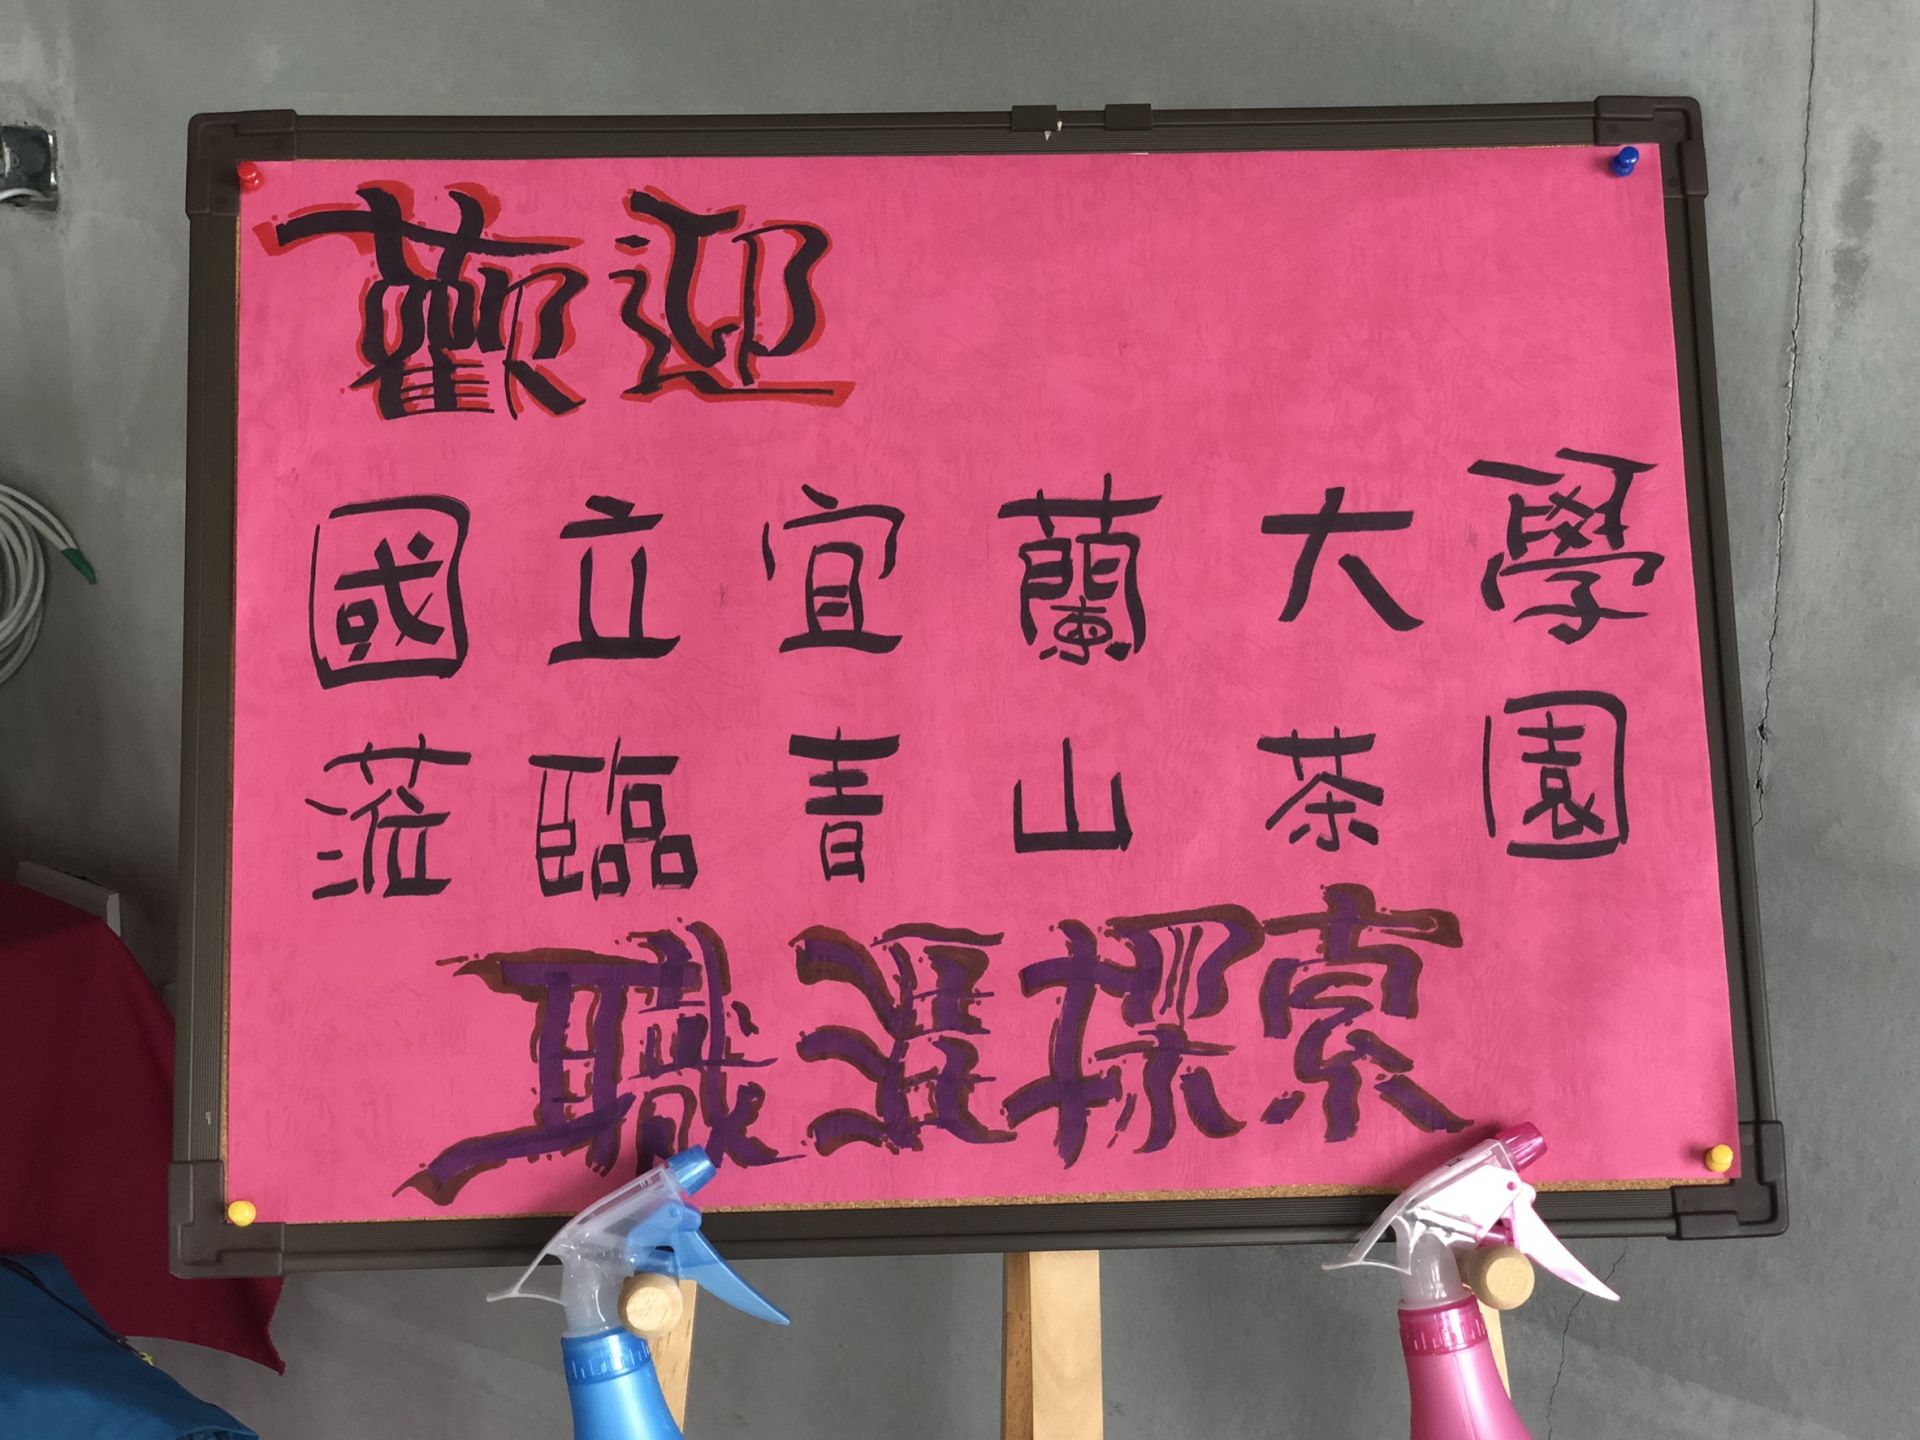 歡迎
國立宜蘭大學
蒞臨青山茶園
職涯探索